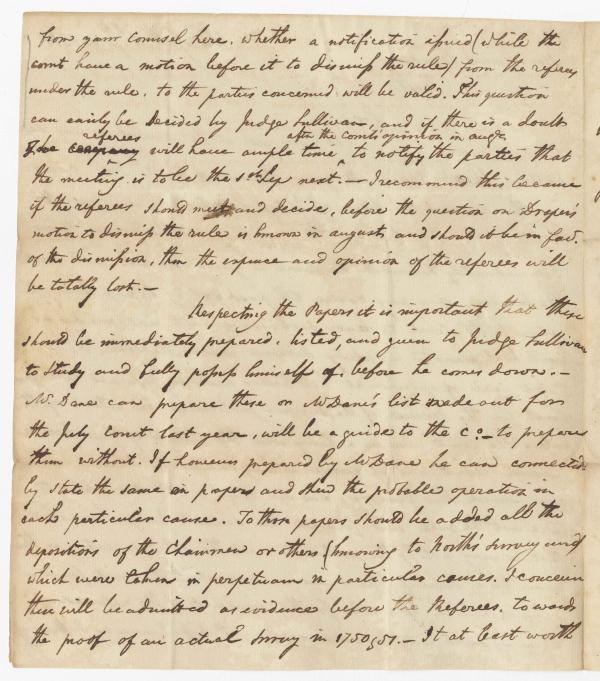 from your counsel here. whether a notification issued (while the
court have a motion before it to dismiss the rule) from the referees
under the rule, to the parties concerned will be valid. This question
can easily be decided by Judge Sullivan, and if there is a doubt
referees after the courts opinion in augt.
The company will have ample time to notify the parties that
the meeting is to be the 1st Sep next. — I recommend this because
if the referees should meet and decide, before the question on Draper's
motion to dismiss the rule is known in august, and should it be in fav.
of the dismission, then the expence and opinion of the referees will
be totally lost. —
Respecting the Papers it is important that these
should be immediately prepared, listed, and given to Judge Sullivan
to study and fully possess himself of, before he comes down. —
Mr. Dane can prepare these or Mr Dane's list made out for
the July Court last year, will be a guide to the Co. to prepare
them without. If however prepared by Mr Dane he can connected
by state the same in papers and shew the probable operation in
each particular cause. To these papers should be added all the
depositions of the Chainmen or others (knowing to North's survey and)
which were taken in perpetuam in particular causes. I conceive
these will be admitted as evidence before the Referees, towards
the proof of an actual survey in 1750 & 51. — It at least worth